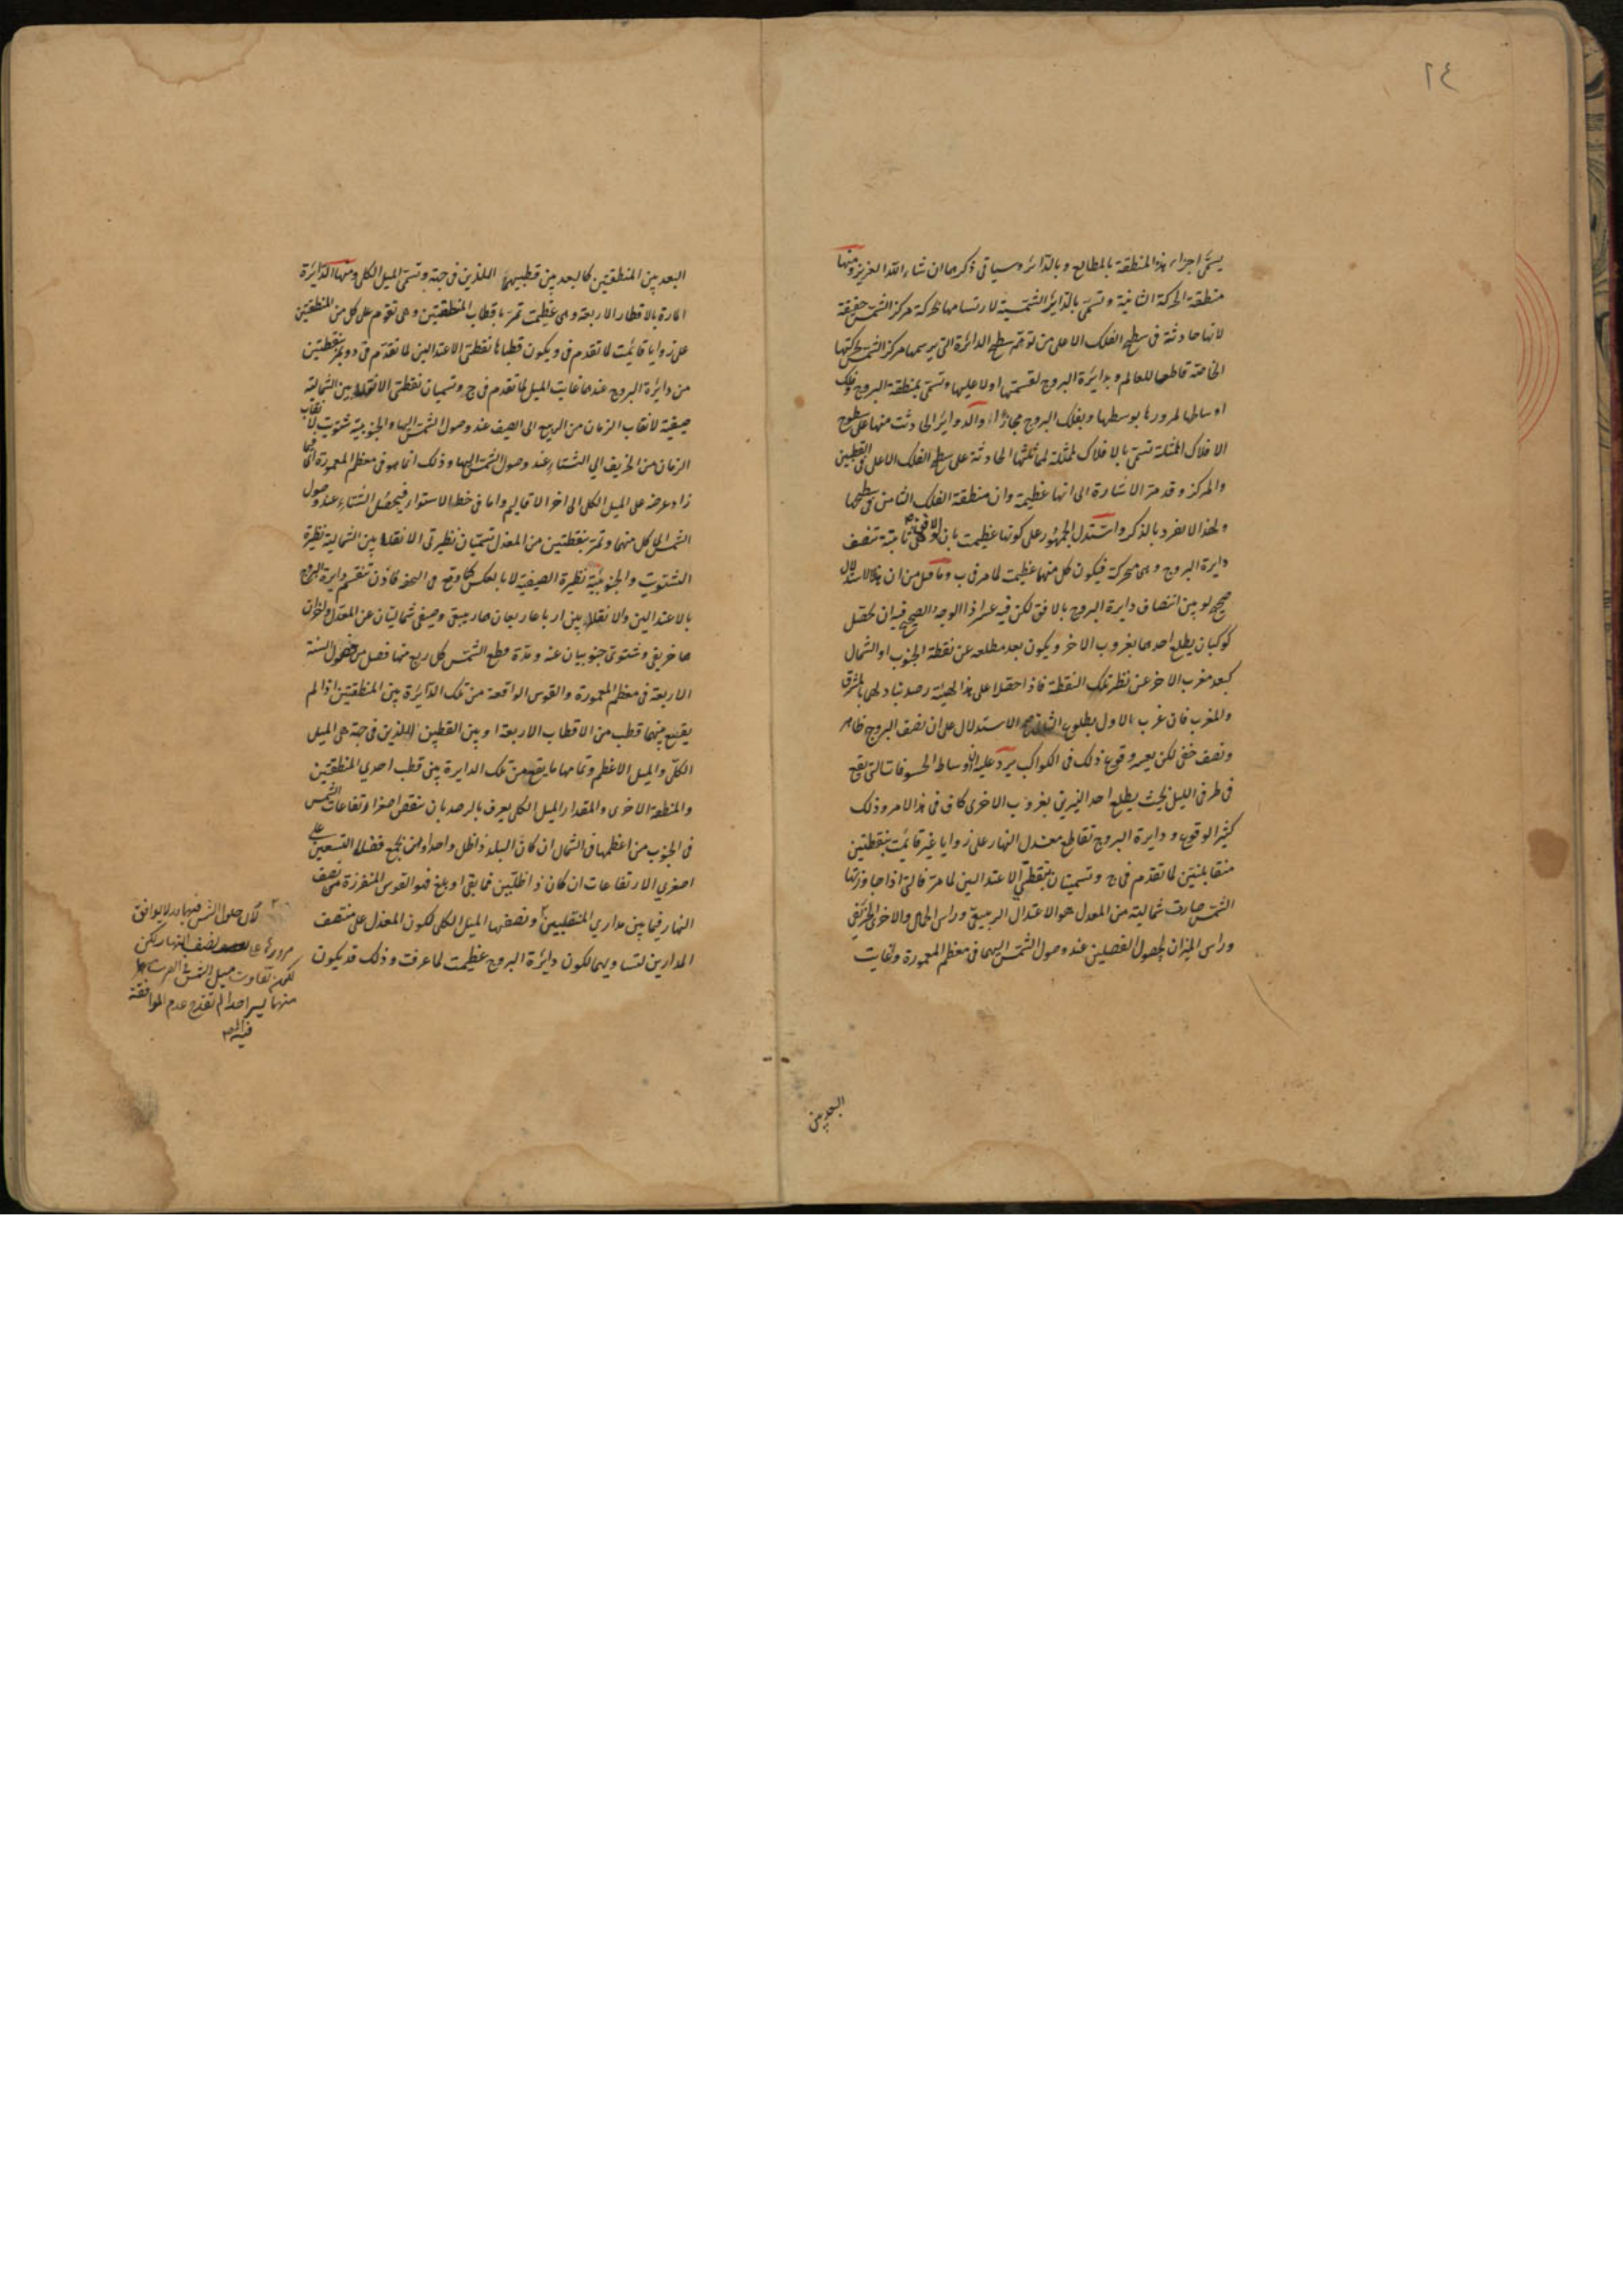 ٢٤
يسمى اجزاء هذه المنطقة بالمطالع وبالدائرة وسياتى ذكرها ان شاء الله العزيز ومنها
منطقة الحركة الثانية وتسمى بالدائرة الشمسية لارتسامها بحركة مركز الشمس حقيقة
لانها حادثة فى سطح الفلك الاعلى من توهم سطح الدائرة التى يرسمها مركز الشمس بحركتها
الخاصة قاطعا للعالم وبدايرة البروج لقسمتها اولا عليها وتسمى بمنطقة البروج وفلك
اوساطها لمرورها بوسطها وبفلك البروج مجازا والدواير الحادثة منها على سطوح
الافلاك الممثلة تسمى بالافلاك الممثلة لمماثلتها الحادثة على سطح الفلك الاعلى فى القطبين
والمركز وقد مر الاشارة الى انها عظيمة وان منطقة الفلك الثامن فى سطحها
ولهذا لا يفرد بالذكر واستدل الجمهور على كونها عظيمة بان الافق وهى ثابتة تنصف
دايرة البروج وهى متحركة فيكون كل منهما عظيمة لما مر فى ب وما قيل من ان هذا الاستدلال
صحيح لو بين انتصاف دايرة البروج بالافق لكن فيه عسر اذ الوجه الصحيح فيه ان يحصل
كوكبان يطلع احدهما بغروب الاخر ويكون بعد مطلعه عن نقطة الجنوب او الشمال
كبعد مغرب الاخر عن نظير تلك النقطة فاذا حصلا على هذا الهيئة رصد تبادلهما بالمشرق
والمغرب فان غرب الاول بطلوع الثانى صح الاستدلال على ان نصف البروج ظاهر
ونصف خفى لكن يعسر وقوع ذلك فى الكواكب يرد عليه ان اوساط الخسوفات التى يقع
فى طرفى الليل بحيث يطلع احد النيرين بغروب الاخرى كاف فى هذا الامر وذلك
كثير الوقوع ودايرة البروج تقاطع معدل النهار على زوايا غير قائمة بنقطتين
متقابلتين لما تقدم فى ج وتسميان بنقطتى الاعتدالين لما مر فالتى اذا جاوزتها
الشمس صارت شمالية من المعدل هو الاعتدال الربيعى وراس الحمل والاخرى الخريفى
وراس الميزان لحصول الفصلين عند وصول الشمس اليهما فى معظم المعمورة وغاية
البعد بين
البعد بين المنطقتين كالبعد بين قطبيهما اللذين فى جهة وتسمى الميل الكلى ومنها الدائرة
المارة بالاقطاب الاربعة وهى عظيمة تمر باقطاب المنطقتين وهى تقوم على كل من المنطقتين
على زوايا قائمة لما تقدم فى و يكون قطباها نقطتى الاعتدالين لما تقدم فى د ويمر بنقطتين
من دائرة البروج عندهما غاية الميل لما تقدم فى ج وتسميان نقطتى الانقلابين الشمالية
صيفية لانقلاب الزمان من الربيع الى الصيف عند وصول الشمس اليها والجنوبية شتوية لانقلاب
الزمان من الخريف الى الشتاء عند وصول الشمس اليها وذلك انما هو فى معظم المعمورة اى فيما
زاد عرضه على الميل الكلى الى اخر الاقاليم واما فى خط الاستواء فيحصل الشتاء عند وصول
الشمس الى كل منهما وتمر بنقطتين من المعدل تسميان نظيرتى الانقلابين الشمالية نظيرة
الشتوية والجنوبية نظيرة الصيفية لا بالعكس كما وقع فى التحفة فاذن تنقسم دايرة البروج
بالاعتدالين والانقلابين ارباعا ربعان هما ربيعى وصيفى شماليتان عن المعدل واخران
هما خريفى وشتوى جنوبيان عنه ومدة قطع الشمس كل ربع منها فصل من فصول السنة
الاربعة فى معظم المعمورة والقوس الواقعة من تلك الدائرة بين المنطقتين اذا لم
يقع بينهما قطب من الاقطاب الاربعة او بين القطبين اللذين فى جهة هى الميل
الكلى والميل الاعظم وتمامها ما يقع من تلك الدايرة بين قطب احدى المنطقتين
والمنطقة الاخرى والمقدار الميل الكلى يعرف بالرصد بان ينقص اصغر ارتفاعات الشمس
فى الجنوب من اعظمها فى الشمال ان كان البلد ذا ظل واحد او بان يجمع فضل التسعين على
اصغرى الارتفاعات ان كان ذا ظلين فما بقى او بلغ فهو القوس المنفرزة من نصف
النهار فيما بين مدارى المنقلبين ونصفها الميل الكلى لكون المعدل على منتصف
المدارين لتساويهما لكون دائرة البروج عظيمة لما عرفت وذلك قد يكون
لان حلول الشمس فيهما قد لا يوافق
مرورها على نصف النهار لكن
لكون تفاوت ميل الشمس فى القرب
منهما يسيرا جدا لم تقدح عدم الموافقة
فيه